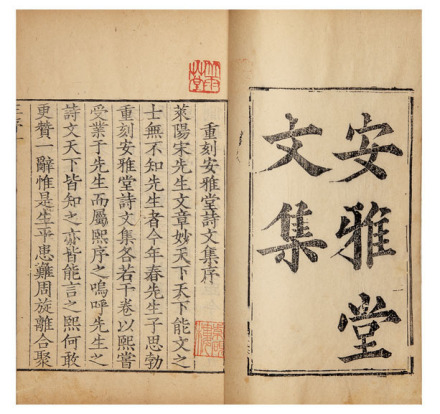 安雅堂
文集
重刻安雅堂詩文集序
萊陽宋先生文章妙天下天下能文之
士無不知先生者今年春先生子思勃
重刻安雅堂詩文集各若干卷以熙嘗
受業于先生而屬熙序之嗚呼先生之
詩文天下皆知之亦皆能言之熙何敢
更贊一辭惟是生平患難周旋離合聚